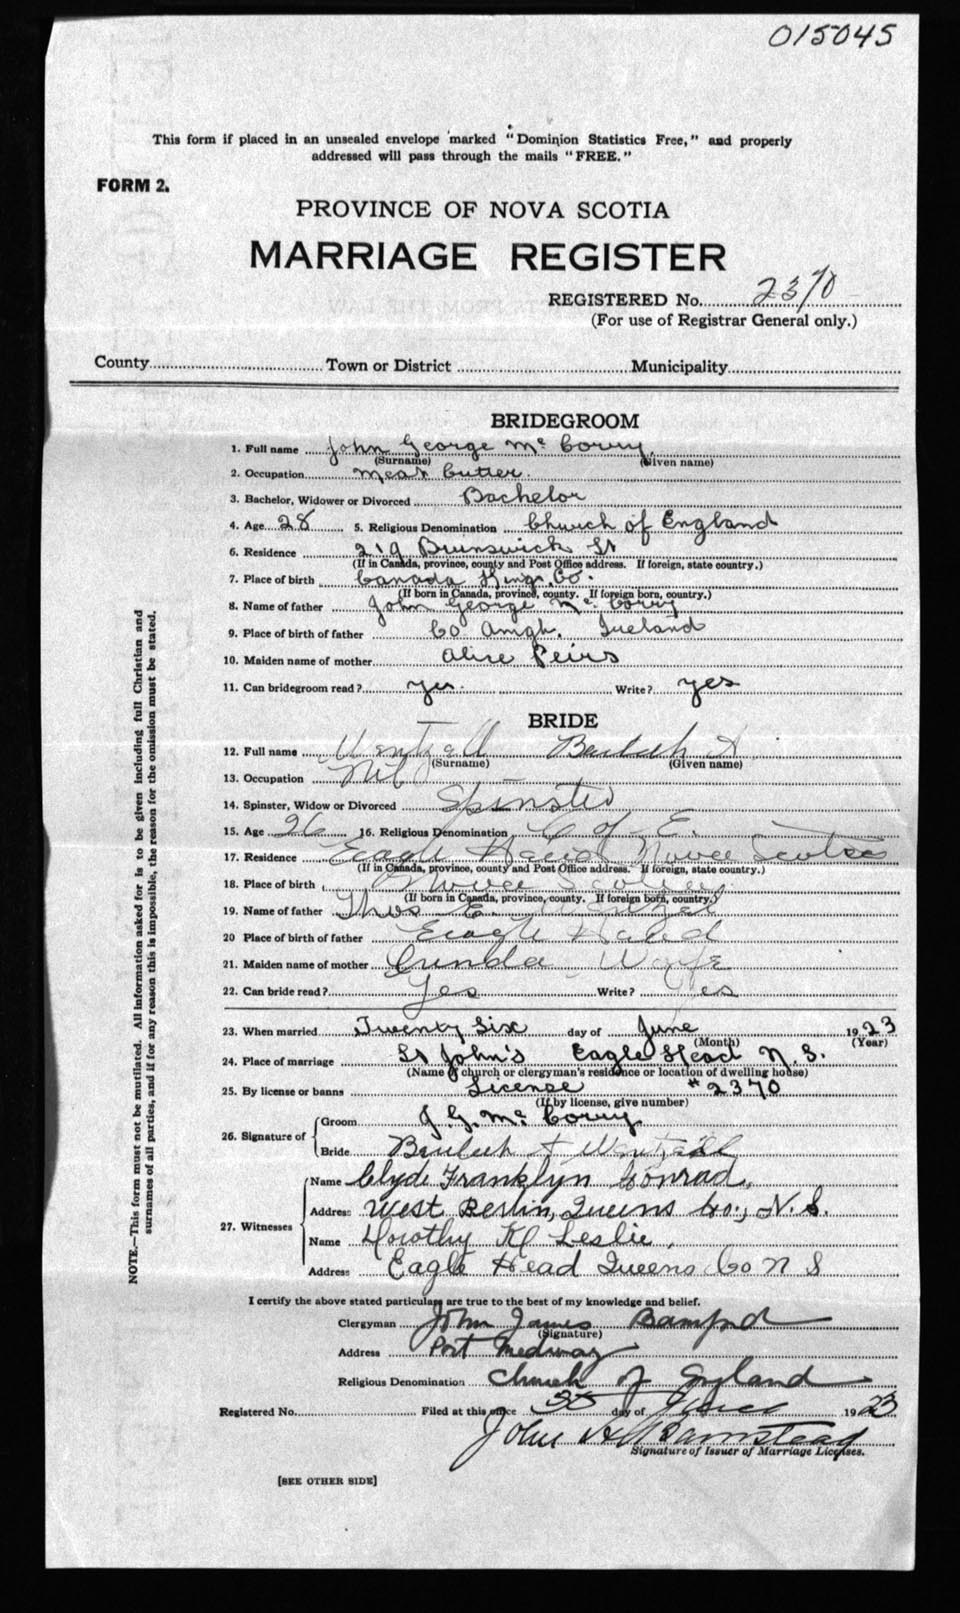 015045
This form if placed in an unsealed envelope marked "Dominion Statistics Free," and properly
addressed will pass through the mails "FREE."
FORM 2.
PROVINCE OF NOVA SCOTIA
MARRIAGE REGISTER
REGISTERED No. 2370
(For use of Registrar General only.)
County Town or District Municipality
BRIDEGROOM
1. Full name John George Mc Corry
(Surname) (Given name)
2. Occupation Meat Cutter.
3. Bachelor, Widower or Divorced Bachelor
4. Age 28 5. Religious Denomination Church of England
6. Residence 219 Brunswick St
(If in Canada, province, county and Post Office address. If foreign, state country.)
7. Place of birth Canada Kings Co.
(If born in Canada, province, county. If foreign born, country.)
8. Name of father John George Mc Corry
9. Place of birth of father Co Amgh. Ireland
10. Maiden name of mother Alise Peirs
11. Can bridegroom read? yes. Write? yes
BRIDE
12. Full name Beulah A
(Surname) (Given name)
13. Occupation Nil
14. Spinster, Widow or Divorced Spinster
15. Age 26 16. Religious Denomination C of E.
17. Residence Eagle Head Nova Scotia
(If in Canada, province, county and Post Office address. If foreign, state country.)
18. Place of birth Nova Scotia
(If born in Canada, province, county. If foreign born, country.)
19. Name of father Thos E. Wenzel
20 Place of birth of father Eagle Head
21. Maiden name of mother Wolfe
22. Can bride read? Yes Write? Yes
23. When married Twenty Six day of June 1923
(Month) (Year)
24. Place of marriage St John's Eagle Head N.S.
(Name of church or clergyman's residence or location of dwelling house)
25. By license or banns License # 2370
(If by license, give number)
26. Signature of
Groom J. G. Mc Corry
Bride Beulah A
27. Witnesses
Name Clyde Franklyn Conrad,
Address West Berlin, Queens Co., N.S.
Name Dorothy M Leslie,
Address Eagle Head Queens Co N S
I certify the above stated particulars are true to the best of my knowledge and belief.
Clergyman John James Bamford
(Signature)
Address Port Medway
Religious Denomination Church of England
Registered No. Filed at this office day of June 1923
John Barnstead
Signature of Issuer of Marriage Licenses.
[SEE OTHER SIDE]
NOTE.—This form must not be mutilated. All information asked for is to be given including full Christian and
surnames of all parties, and if for any reason this is impossible, the reason for the omission must be stated.